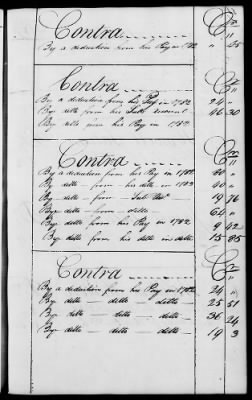 Contra Cr
By a deduction from his Pay in 1782 " 25
Contra Cr
By a deduction from his Pay in 1782 24 "
By ditto from his 46 30
By ditto from his Pay in 1782
Contra Cr
By a deduction from his Pay in 1782 80 "
By ditto - from - his ditto in 1783 40 "
By ditto - from - 19 76
By ditto - from - ditto 64 "
By ditto from his Pay in 1782 9 42
By ditto from his ditto in ditto 15 85
Contra Cr
By a deduction from his Pay in 1782 24 "
By ditto - ditto - ditto 25 51
By ditto - ditto - ditto 36 24
By ditto - ditto - ditto 19 3